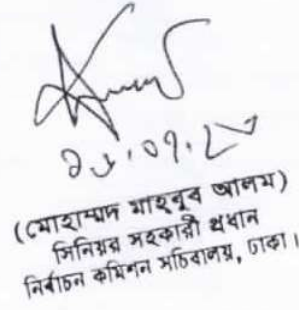 (মোহাম্মদ মাহবুব আলম)
সিনিয়র সহকারী প্রধান
নির্বাচন কমিশন সচিবালয়, ঢাকা।